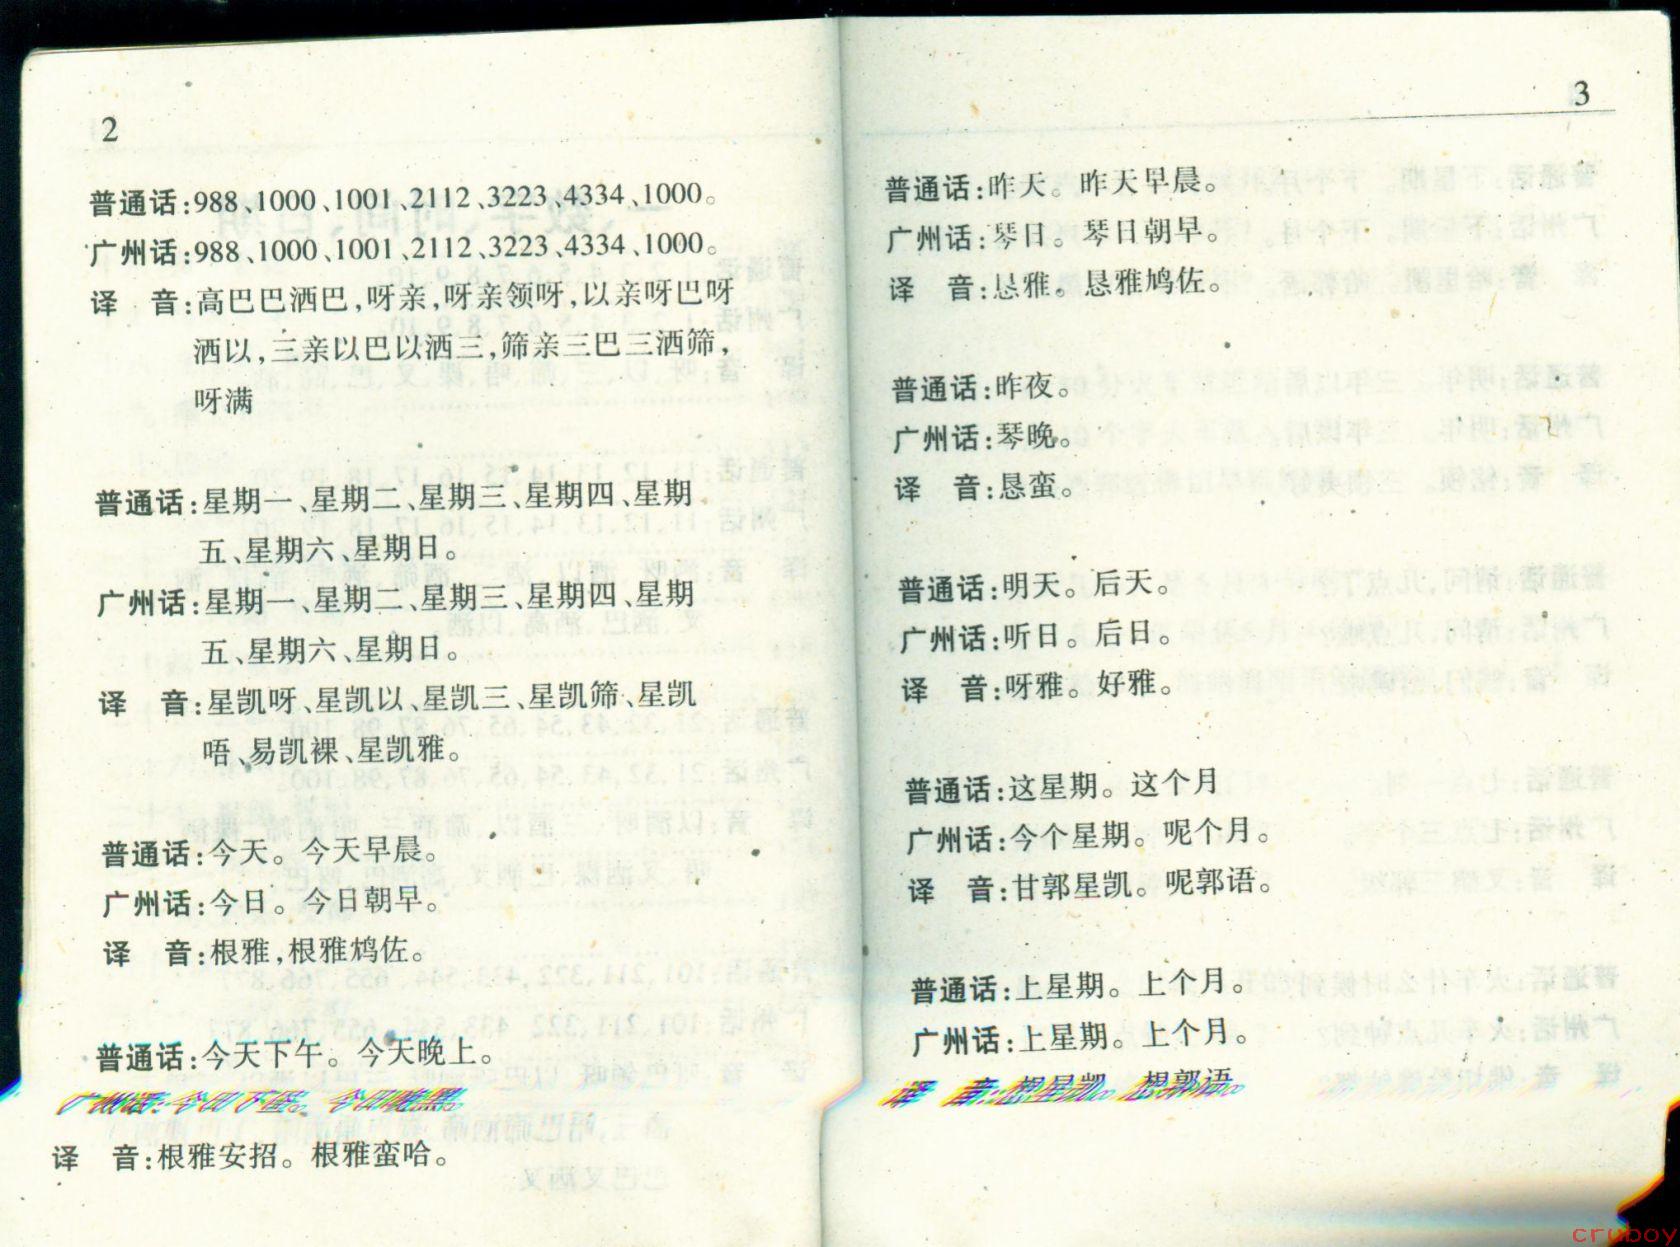 2
普通话:988、1000、1001、2112、3223、4334、1000。
广州话:988、1000、1001、2112、3223、4334、1000。
译 音:高巴巴洒巴,呀亲,呀亲领呀,以亲呀巴呀
洒以,三亲以巴以洒三,筛亲三巴三洒筛,
呀满
普通话:星期一、星期二、星期三、星期四、星期
五、星期六、星期日。
广州话:星期一、星期二、星期三、星期四、星期
五、星期六、星期日。
译 音:星凯呀、星凯以、星凯三、星凯筛、星凯
唔、易凯裸、星凯雅。
普通话:今天。今天早晨。
广州话:今日。今日朝早。
译 音:根雅,根雅鸠佐。
普通话:今天下午。今天晚上。
广州话:今日下
译 音:根雅安招。根雅蛮哈。
3
普通话:昨天。昨天早晨。
广州话:琴日。琴日朝早。
译 音:恳雅。恳雅鸠佐。
普通话:昨夜。
广州话:琴晚。
译 音:恳蛮。
普通话:明天。后天。
广州话:听日。后日。
译 音:呀雅。好雅。
普通话:这星期。这个月
广州话:今个星期。呢个月。
译 音:甘郭星凯。呢郭语。
普通话:上星期。上个月。
广州话:上星期。上个月。
译 音:想星凯。想郭语。
cruboy